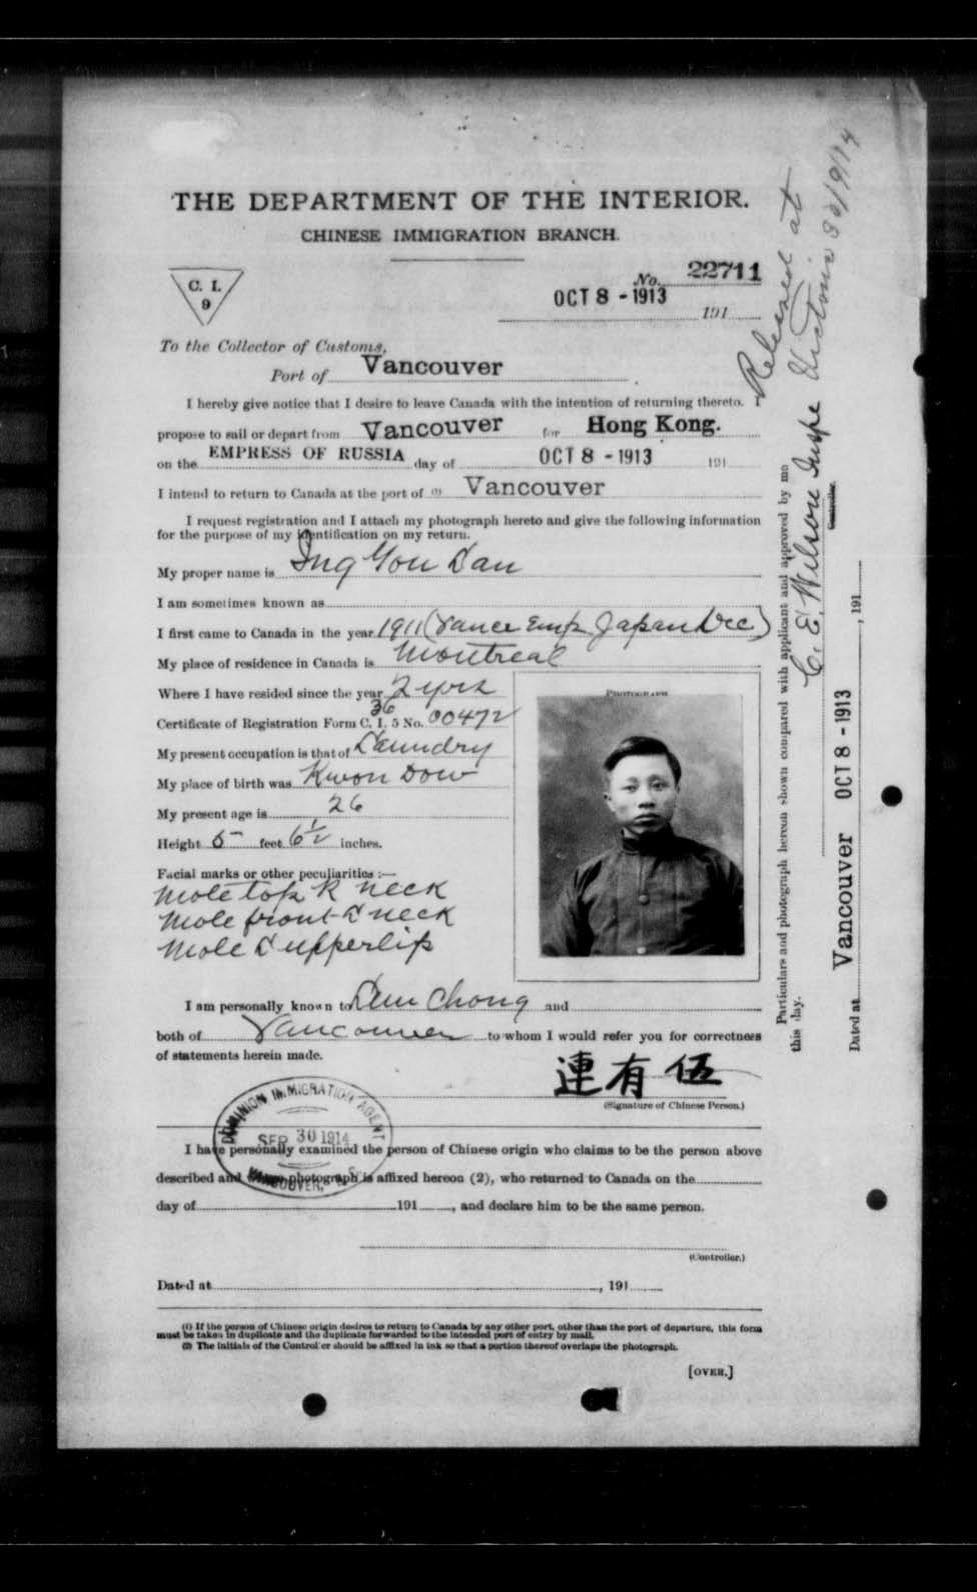 THE DEPARTMENT OF THE INTERIOR.
CHINESE IMMIGRATION BRANCH.
C. I.
9
No. 22711
OCT 8 - 1913 191
To the Collector of Customs,
Port of Vancouver
I hereby give notice that I desire to leave Canada with the intention of returning thereto. I
propose to sail or depart from Vancouver for Hong Kong.
on the EMPRESS OF RUSSIA day of OCT 8 - 1913 191
I intend to return to Canada at the port of (1) Vancouver
I request registration and I attach my photograph hereto and give the following information
for the purpose of my identification on my return.
My proper name is Ing You Lan
I am sometimes known as
I first came to Canada in the year 1911 (Vance Emp Japan Dec)
My place of residence in Canada is Montreal
Where I have resided since the year 2 yrs
PHOTOGRAPH
36
Certificate of Registration Form C. I. 5 No. 00472
My present occupation is that of Laundry
My place of birth was Kwon Dow
My present age is 26
Height 5 feet 6 1/2 inches.
Facial marks or other peculiarities :—
Mole top R neck
Mole front L neck
Mole L upperlip
I am personally known to Lum Chong and
both of Vancouver to whom I would refer you for correctness
of statements herein made.
連有伍
(Signature of Chinese Person.)
DOMINION IMMIGRATION AGENT
SEP 30 1914
VANCOUVER,
I have personally examined the person of Chinese origin who claims to be the person above
described and whose photograph is affixed hereon (2), who returned to Canada on the
day of 191 , and declare him to be the same person.
(Controller.)
Dated at , 191
(1) If the person of Chinese origin desires to return to Canada by any other port, other than the port of departure, this form
must be taken in duplicate and the duplicate forwarded to the intended port of entry by mail.
(2) The initials of the Controller should be affixed in ink so that a portion thereof overlaps the photograph.
[OVER.]
Released at
Victoria 30/9/14
Particulars and photograph hereon shown compared with applicant and approved by me
this day.
C. E. Wilson Inspe
Controller.
Dated at Vancouver OCT 8 - 1913 , 191